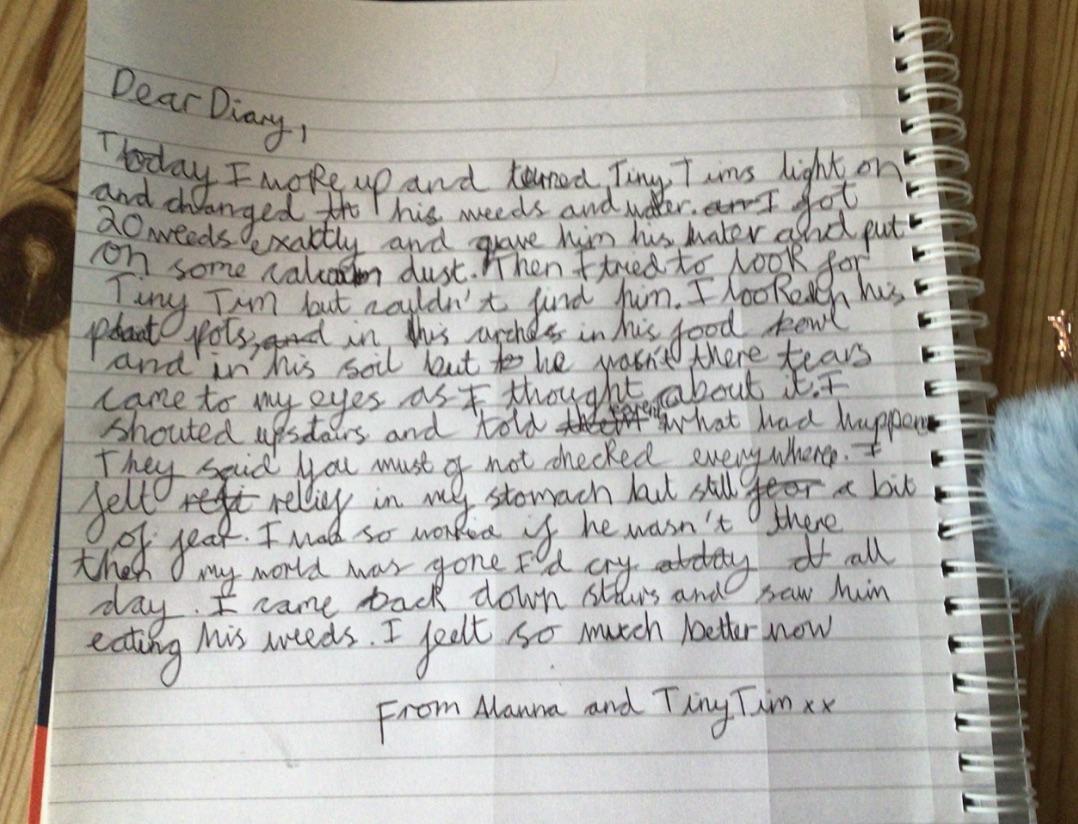 Dear Diary,
Today I woke up and turned Tiny Tims light on
and changed his weeds and water. I got
20 weeds exaktly and gave him his water and put
on some dust. Then I tried to look for
Tiny Tim but couldn't find him. I looked in his
plant pots, and in his arches in his food bowl
and in his soil but he wasn't there tears
came to my eyes as I thought about it. I
shouted upstairs and told what had happen
They said you must of not checked everywhere. I
felt relief in my stomach but still a bit
of fear. I was so worried if he wasn't there
then my world was gone I'd cry all
day. I came back down stairs and saw him
eating his weeds. I feelt so much better now
From Alanna and Tiny Tim xx